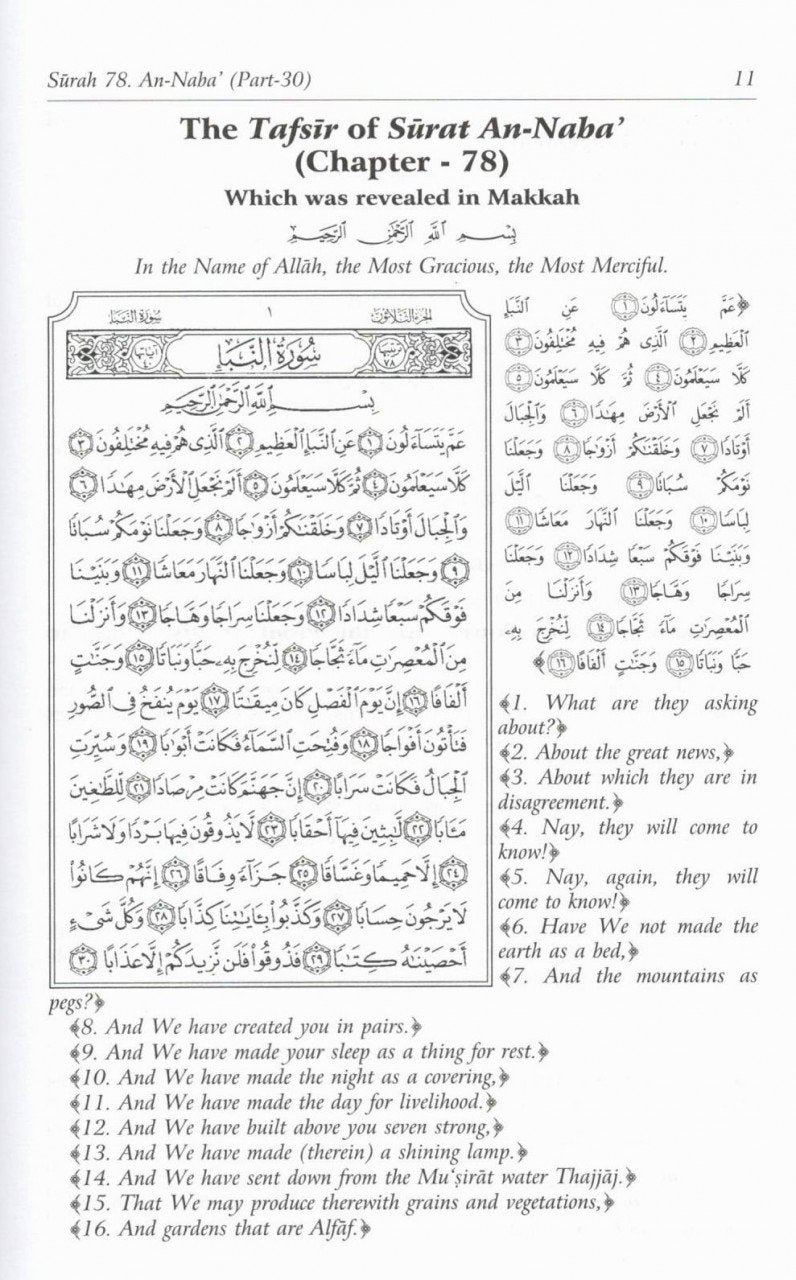 Sūrah 78. An-Naba’ (Part-30) 11
The Tafsīr of Sūrat An-Naba’
(Chapter - 78)
Which was revealed in Makkah
بِسْمِ اللَّهِ الرَّحْمَٰنِ الرَّحِيمِ
In the Name of Allāh, the Most Gracious, the Most Merciful.
الجزء الثلاثون ١ سورة النبإ
ترتيبها ٧٨ سُورَةُ النَّبَإِ آياتها ٤٠
بِسْمِ اللَّهِ الرَّحْمَٰنِ الرَّحِيمِ
عَمَّ يَتَسَاءَلُونَ ١ عَنِ النَّبَإِ الْعَظِيمِ ٢ الَّذِي هُمْ فِيهِ مُخْتَلِفُونَ ٣
كَلَّا سَيَعْلَمُونَ ٤ ثُمَّ كَلَّا سَيَعْلَمُونَ ٥ أَلَمْ نَجْعَلِ الْأَرْضَ مِهَٰدًا ٦
وَالْجِبَالَ أَوْتَادًا ٧ وَخَلَقْنَٰكُمْ أَزْوَٰجًا ٨ وَجَعَلْنَا نَوْمَكُمْ سُبَاتًا
٩ وَجَعَلْنَا الَّيْلَ لِبَاسًا ١٠ وَجَعَلْنَا النَّهَارَ مَعَاشًا ١١ وَبَنَيْنَا
فَوْقَكُمْ سَبْعًا شِدَادًا ١٢ وَجَعَلْنَا سِرَاجًا وَهَّاجًا ١٣ وَأَنزَلْنَا
مِنَ الْمُعْصِرَٰتِ مَاءً ثَجَّاجًا ١٤ لِّنُخْرِجَ بِهِ حَبًّا وَنَبَاتًا ١٥ وَجَنَّٰتٍ
أَلْفَافًا ١٦ إِنَّ يَوْمَ الْفَصْلِ كَانَ مِيقَٰتًا ١٧ يَوْمَ يُنفَخُ فِي الصُّورِ
فَتَأْتُونَ أَفْوَاجًا ١٨ وَفُتِحَتِ السَّمَاءُ فَكَانَتْ أَبْوَٰبًا ١٩ وَسُيِّرَتِ
الْجِبَالُ فَكَانَتْ سَرَابًا ٢٠ إِنَّ جَهَنَّمَ كَانَتْ مِرْصَادًا ٢١ لِّلطَّٰغِينَ
مَـَٔابًا ٢٢ لَّٰبِثِينَ فِيهَا أَحْقَابًا ٢٣ لَّا يَذُوقُونَ فِيهَا بَرْدًا وَلَا شَرَابًا
٢٤ إِلَّا حَمِيمًا وَغَسَّاقًا ٢٥ جَزَاءً وِفَاقًا ٢٦ إِنَّهُمْ كَانُوا
لَا يَرْجُونَ حِسَابًا ٢٧ وَكَذَّبُوا بِـَٔايَٰتِنَا كِذَّابًا ٢٨ وَكُلَّ شَيْءٍ
أَحْصَيْنَٰهُ كِتَٰبًا ٢٩ فَذُوقُوا فَلَن نَّزِيدَكُمْ إِلَّا عَذَابًا ٣٠
﴿عَمَّ يَتَسَاءَلُونَ ١ عَنِ النَّبَإِ
الْعَظِيمِ ٢ الَّذِي هُمْ فِيهِ مُخْتَلِفُونَ ٣
كَلَّا سَيَعْلَمُونَ ٤ ثُمَّ كَلَّا سَيَعْلَمُونَ ٥
أَلَمْ نَجْعَلِ الْأَرْضَ مِهَٰدًا ٦ وَالْجِبَالَ
أَوْتَادًا ٧ وَخَلَقْنَٰكُمْ أَزْوَٰجًا ٨ وَجَعَلْنَا
نَوْمَكُمْ سُبَاتًا ٩ وَجَعَلْنَا الَّيْلَ
لِبَاسًا ١٠ وَجَعَلْنَا النَّهَارَ مَعَاشًا ١١
وَبَنَيْنَا فَوْقَكُمْ سَبْعًا شِدَادًا ١٢ وَجَعَلْنَا
سِرَاجًا وَهَّاجًا ١٣ وَأَنزَلْنَا مِنَ
الْمُعْصِرَٰتِ مَاءً ثَجَّاجًا ١٤ لِّنُخْرِجَ بِهِ
حَبًّا وَنَبَاتًا ١٥ وَجَنَّٰتٍ أَلْفَافًا ١٦﴾
﴾1. What are they asking
about?﴿
﴾2. About the great news,﴿
﴾3. About which they are in
disagreement.﴿
﴾4. Nay, they will come to
know!﴿
﴾5. Nay, again, they will
come to know!﴿
﴾6. Have We not made the
earth as a bed,﴿
﴾7. And the mountains as
pegs?﴿
﴾8. And We have created you in pairs.﴿
﴾9. And We have made your sleep as a thing for rest.﴿
﴾10. And We have made the night as a covering,﴿
﴾11. And We have made the day for livelihood.﴿
﴾12. And We have built above you seven strong,﴿
﴾13. And We have made (therein) a shining lamp.﴿
﴾14. And We have sent down from the Mu‘ṣirāt water Thajjāj.﴿
﴾15. That We may produce therewith grains and vegetations,﴿
﴾16. And gardens that are Alfāf.﴿